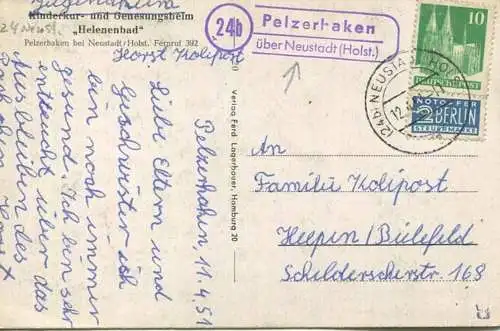 24 Neust.
Kinderkur- und Genesungsheim
„Helenenbad“
Pelzerhaken bei Neustadt/Holst. Fernruf 392
Horst Kolipost
Pelzerhaken, 11.4.51
Liebe Eltern und
Geschwister ich
bin noch immer
gesund. Ich bin sehr
enttäuscht über das
Ausbleiben des
Horst
Verlag Ferd. Lagerbauer, Hamburg 20
24b
Pelzerhaken
über Neustadt (Holst.)
(24b) NEUSTADT HOLST
12.
10
DEUTSCHE POST
NOTOPFER
2 BERLIN
STEUERMARKE
An
Familie Kolipost
Heepen/Bielefeld
Schelderscherstr. 168